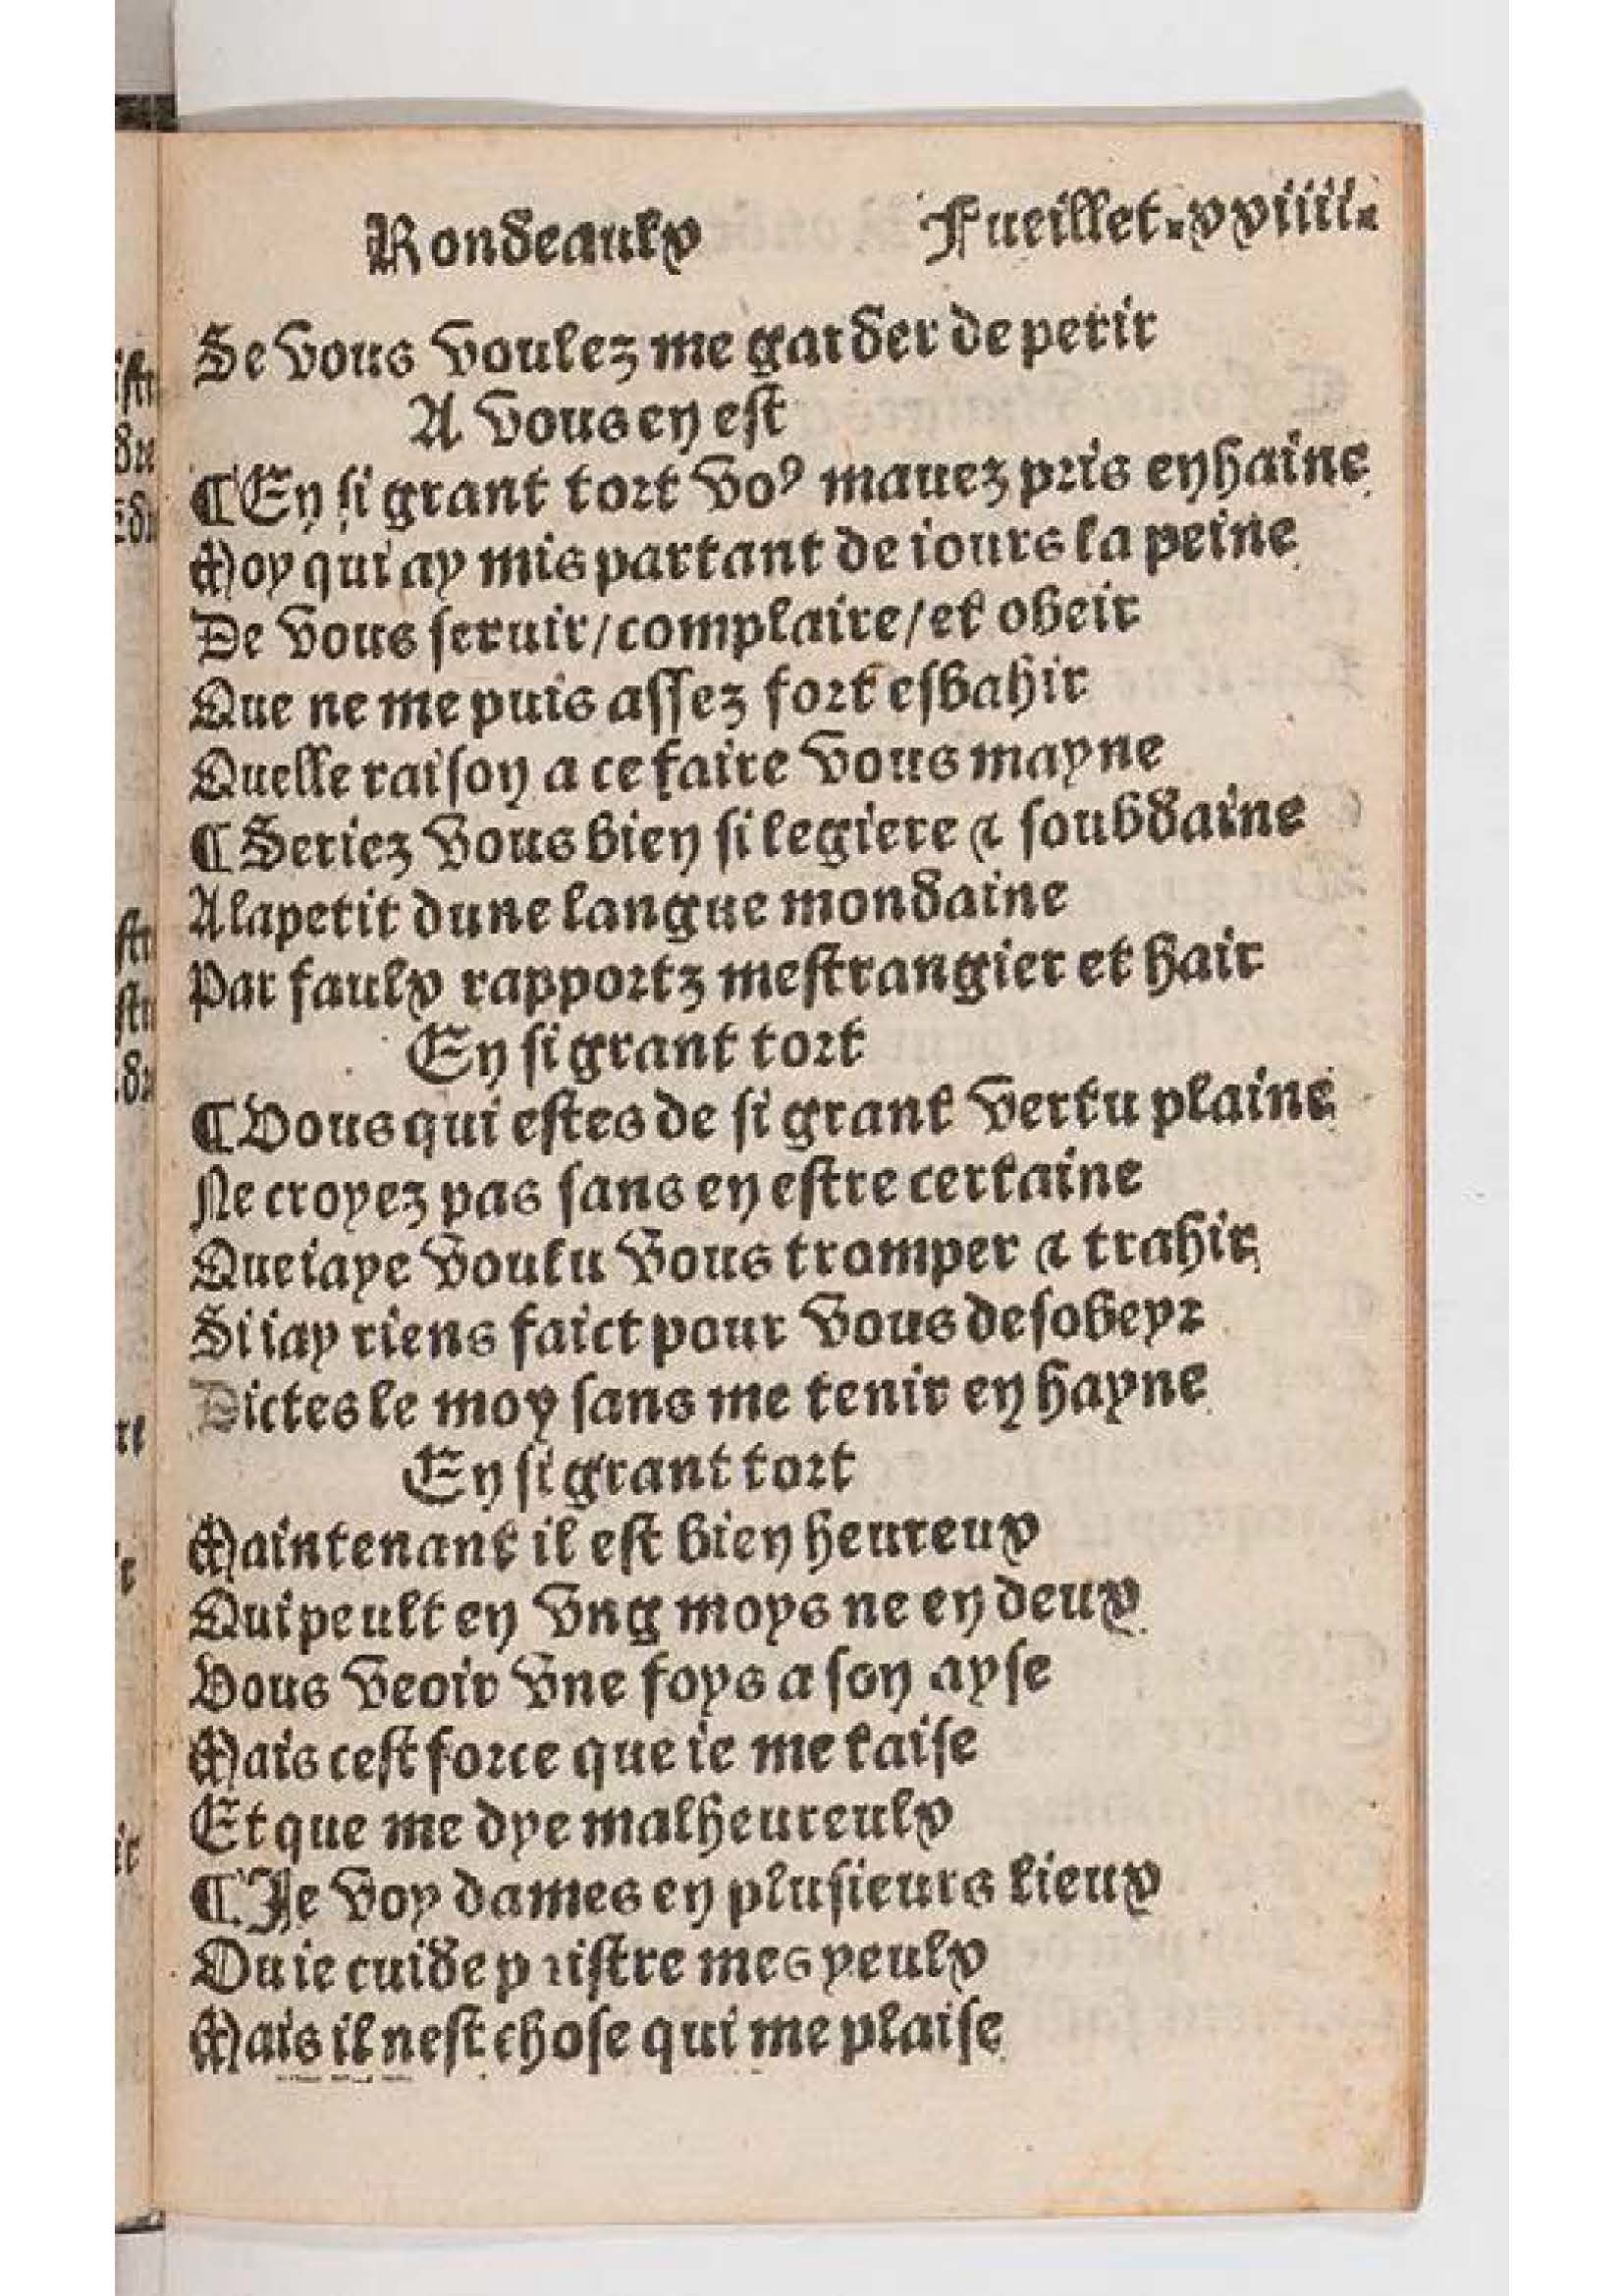 Rondeaulx Fueillet.xxiiii.
Se vous voulez me garder de perir
A vous en est
¶En si grant tort voꝰ mauez pris en haine
Moy qui ay mis partant de iours la peine
De vous seruir/complaire/et obeir
Que ne me puis assez fort esbahir
Quelle raison a ce faire vous mayne
¶Seriez vous bien si legiere & soubdaine
A lapetit dune langue mondaine
Par faulx rapportz mestrangier et hair
En si grant tort
¶Vous qui estes de si grant vertu plaine
Ne croyez pas sans en estre certaine
Que iaye voulu vous tromper & trahir
Si iay riens faict pour vous desobeyr
Dictes le moy sans me tenir en hayne
En si grant tort
Maintenant il est bien heureux
Qui peult en vng moys ne en deux
Vous veoir vne foys a son ayse
Mais cest force que ie me taise
Et que me dye malheureulx
¶Je voy dames en plusieurs lieux
Ou ie cuide pristre mes yeulx
Mais il nest chose qui me plaise